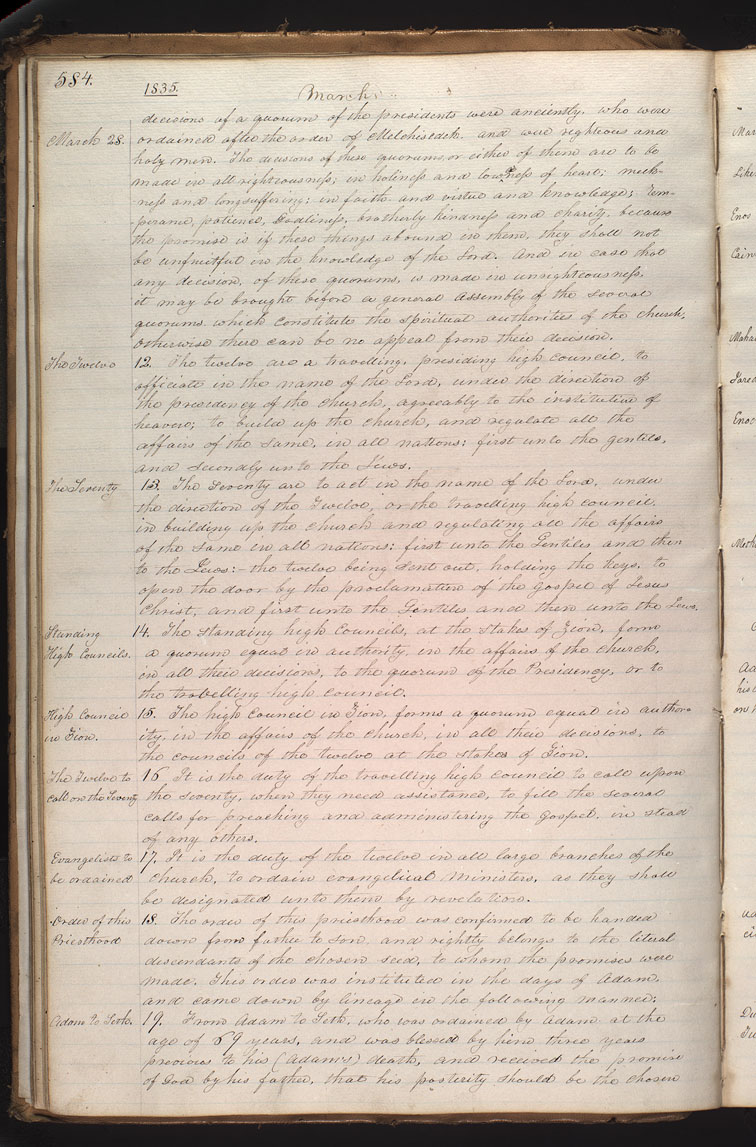 584.
1835.
March.
decisions of a quorum of the presidents were anciently, who were
March 28. ordained after the order of Melchisedek, and were righteous and
holy men. The decisions of these quorums, or either of them are to be
made in all righteousness; in holiness and lowliness of heart; meek-
ness and longsuffering; in faith and virtue and knowledge; Tem-
-perance, patience, Godliness, brotherly kindness and charity, because
the promise is if these things abound in them, they shall not
be unfruitful in the knowledge of the Lord. And in case that
any decision, of these quorums, is made in unrighteousness,
it may be brought before a general assembly of the several
quorums which constitute the spiritual authorities of the church,
otherwise there can be no appeal from their decision.
The Twelve 12. The twelve are a travelling, presiding high council, to
officiate in the name of the Lord, under the direction of
the presidency of the church, agreeably to the institution of
heaven; to build up the church, and regulate all the
affairs of the same, in all nations: first unto the gentiles,
and secondly unto the Jews.
The Seventy 13. The Seventy are to act in the name of the Lord, under
the direction of the Twelve, or the travelling high council,
in building up the church and regulating all the affairs
of the same in all nations: first unto the Gentiles and then
to the Jews:- the twelve being sent out, holding the keys, to
open the door by the proclamation of the gospel of Jesus
Christ, and first unto the Gentiles and then unto the Jews.
Standing 14. The standing high councils, at the stakes of Zion, form
High Councils. a quorum equal in authority, in the affairs of the church,
in all their decisions, to the quorum of the Presidency, or to
the travelling high council.
High Council 15. The high council in Zion, forms a quorum equal in author-
in Zion. ity, in the affairs of the church, in all their decisions, to
the councils of the twelve at the stakes of Zion.
The Twelve to 16 It is the duty of the travelling high council to call upon
call on the Seventy the seventy, when they need assistance, to fill the several
calls for preaching and administering the gospel, in stead
of any others.
Evangelists to 17. It is the duty of the twelve in all large branches of the
be ordained church, to ordain evangelical ministers, as they shall
be designated unto them by revelation.
Order of this 18. The order of this priesthood was confirmed to be handed
Priesthood down from father to son, and rightly belongs to the literal
descendants of the chosen seed, to whom the promises were
made. This order was instituted in the days of Adam,
and came down by lineage in the following manner;
Adam to Seth. 19. From Adam to Seth, who was ordained by Adam at the
age of 69 years, and was blessed by him three years
previous to his (Adam's) death, and received the promise
of God by his father, that his posterity should be the chosen
Mar
Enos
Cain
Maha
Jared
Enoc
his
on